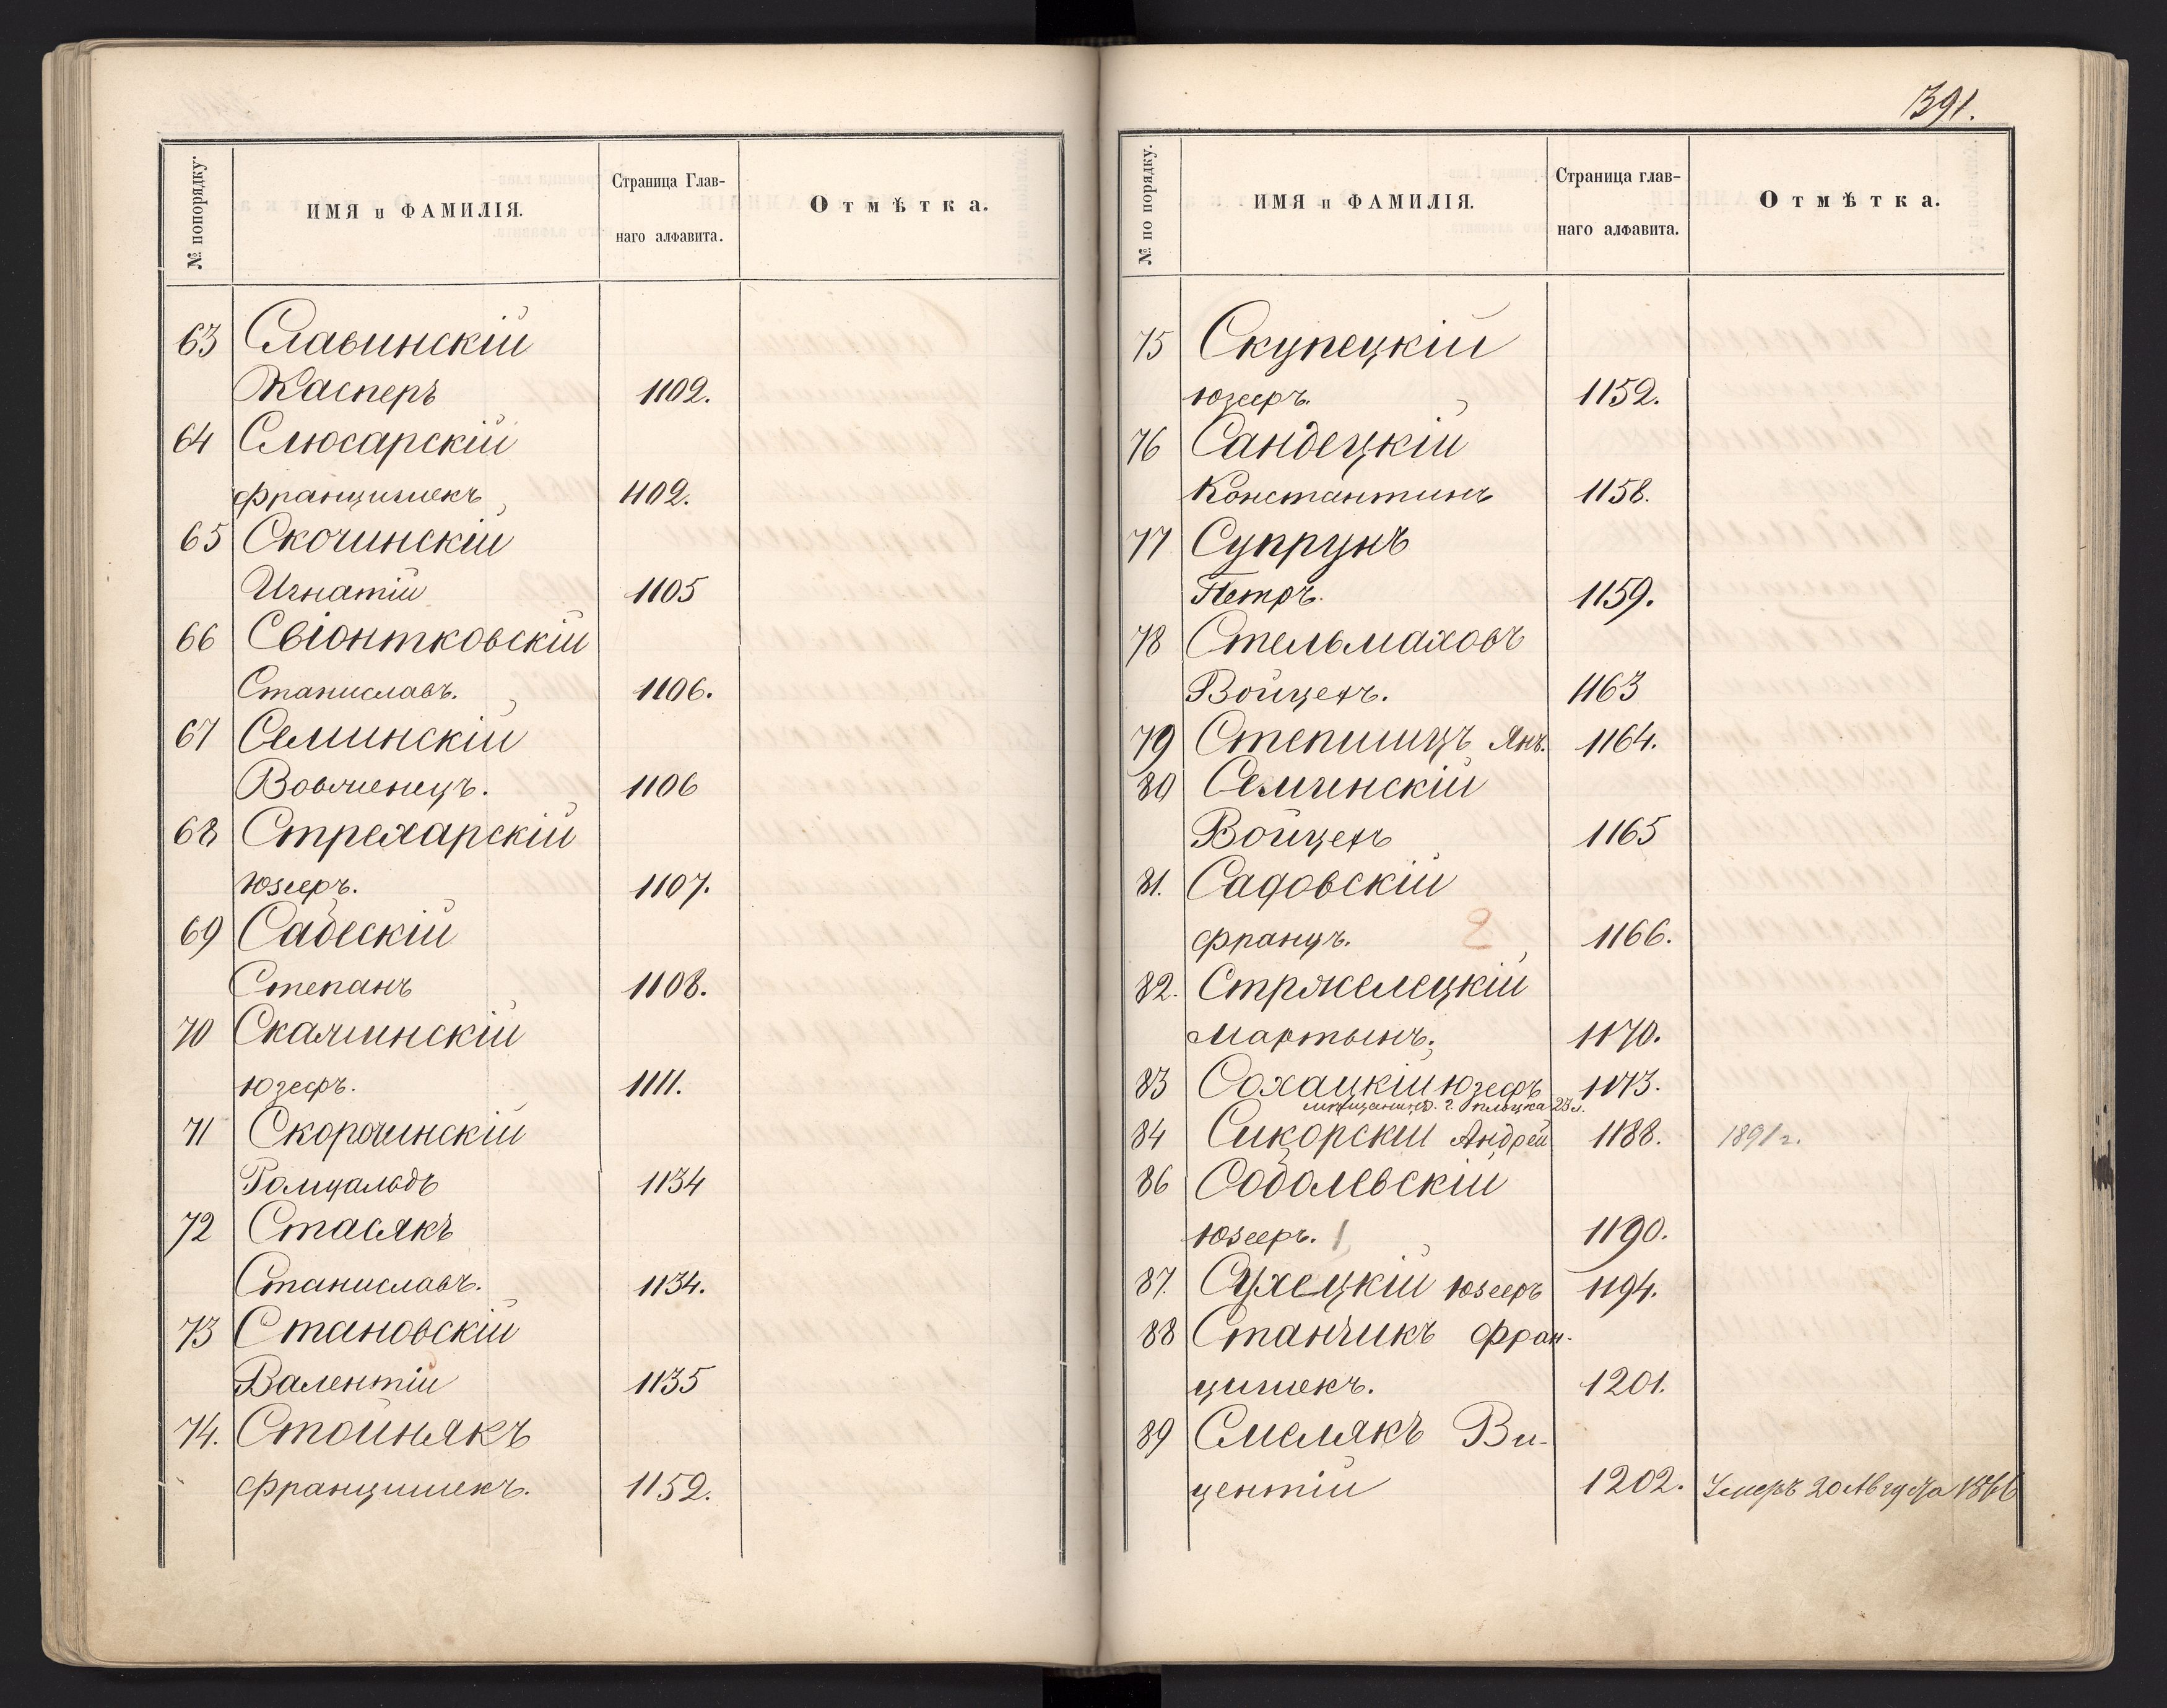 № попорядку.
ИМЯ и ФАМИЛІЯ.
Страница Глав-
наго алфавита.
Отмѣтка.
63 Славинскій
Касперъ 1102.
64 Слюсарскій
Францишекъ 1102.
65 Скочинскій
Игнатій 1105
66 Свіонтковскій
Станиславъ. 1106.
67 Семинскій
1106
68 Стрехарскій
Юзефъ. 1107.
69 Сабескій
Степанъ 1108.
70 Скаминскій
Юзефъ. 1111.
71 Скорочинскій
Ромуальдъ 1134
72 Стасякъ
Станиславъ. 1134.
73 Становскій
Валентій 1135
74. Стойнякъ
Францишекъ. 1152.
391.
№ по порядку.
ИМЯ и ФАМИЛІЯ.
Страница глав-
наго алфавита.
Отмѣтка.
75 Скупецкій
Юзефъ. 1152.
76 Сандецкій
Константинъ 1158.
77 Супрунъ
Петръ. 1159.
78 Стельмаховъ
Войцехъ. 1163
79 Степшицъ Янъ. 1164.
80 Семинскій
Войцехъ 1165
81. Садовскій
Францъ. 2 1166.
82. Стржелецкій
Мартынъ. 1170.
83 Сохацкій Юзефъ 1173.
мѣщанинъ. г. Плоцка 23 л.
84 Сикорскій Андрей 1188. 1891 г.
86 Соболевскій
Юзефъ. 1 1190.
87. Сухецкій Юзефъ 1194.
88 Станчикъ Фран-
цишекъ. 1201.
89 Смелякъ Ви-
центій 1202. Умеръ 20 Августа 1866